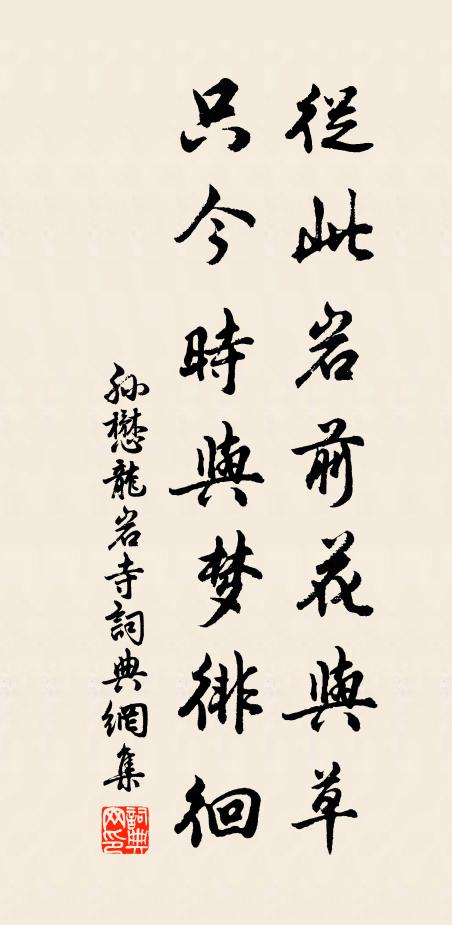 從此岩前花與草
只今時與梦徘徊
孙懋龍岩寺詞典網集
詞典網印